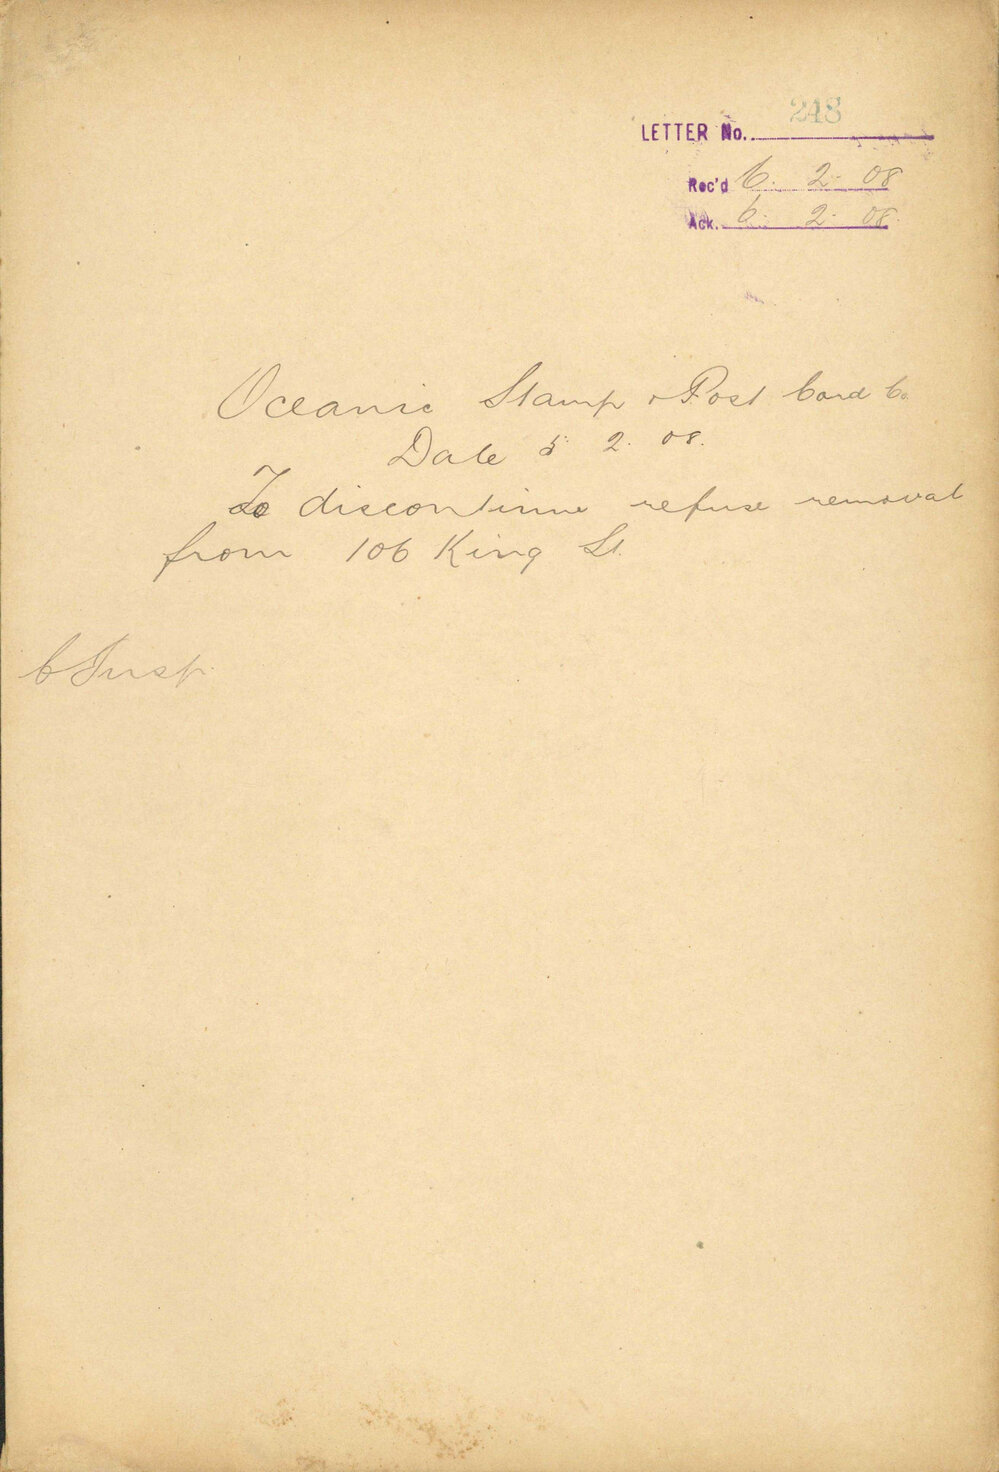 248
LETTER No.
Rec'd 6. 2. 08
Ack. 6. 2. 08.
Oceanic Stamp & Post Card Co.
Date 5. 2. 08.
To discontinue refuse removal
from 106 King St.
C Insp.